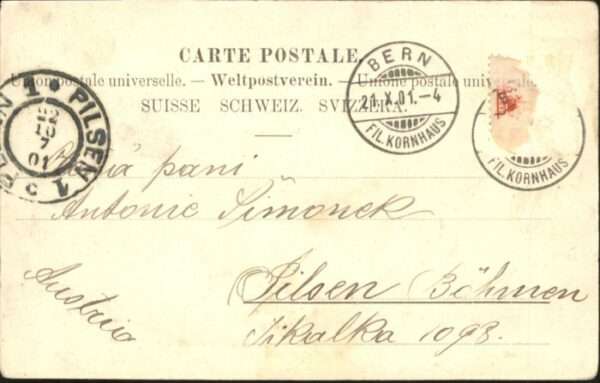 CARTE POSTALE.
Union postale universelle. — Weltpostverein. — Unione postale universale.
SUISSE SCHWEIZ. SVIZZERA.
BERN
21.X.01.-4
FIL. KORNHAUS
FIL. KORNHAUS
PILSEN 1
PILSEN 1
01
pani
Antonie Šimonek
Pilsen Böhmen
Skalka 1098.
Austria